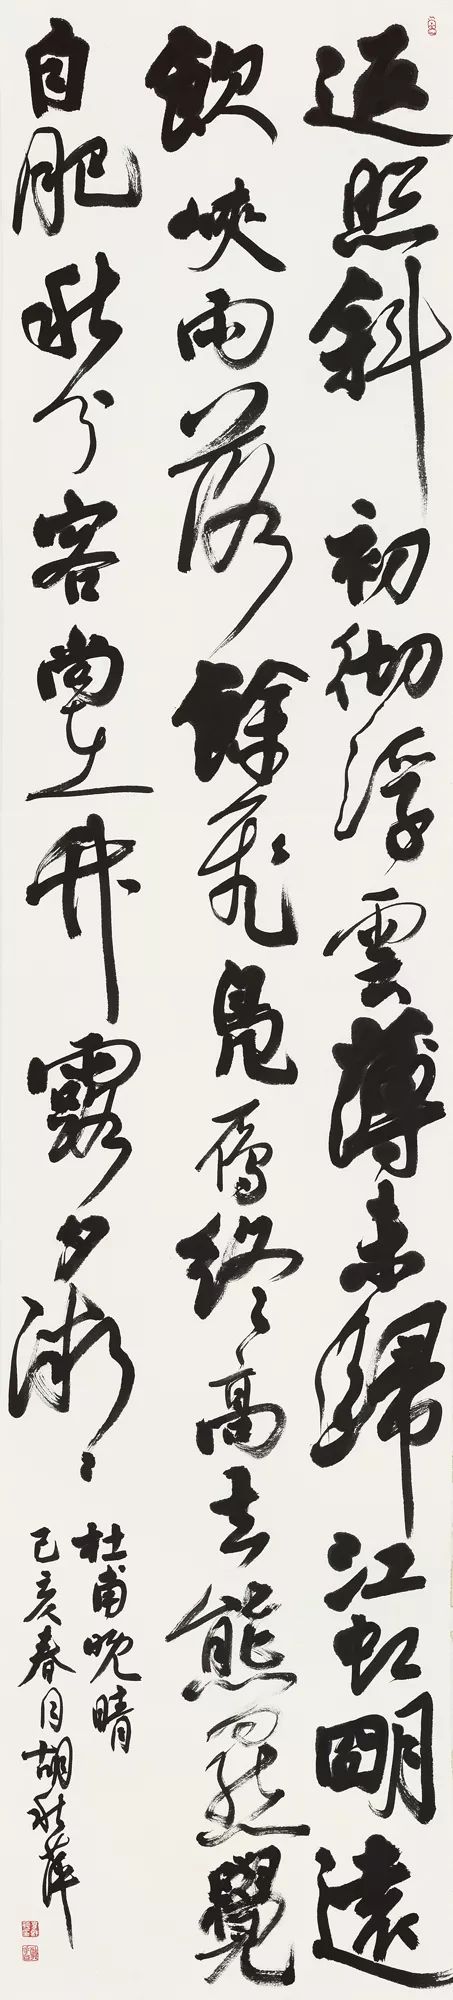 返照斜初彻浮雲薄未歸江虹明遠
飲峽雨落餘飛鳧雁終高去熊羆覺
自肥秋分客尚在竹露夕微〻
杜甫晚晴
己亥春月胡秋萍